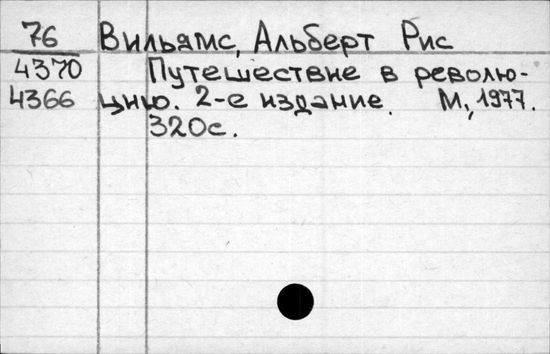 76 Вильямс, Альберт Рис
4370 Путешествие в револю-
4366 цию. 2-е издание. М., 1977.
320с.